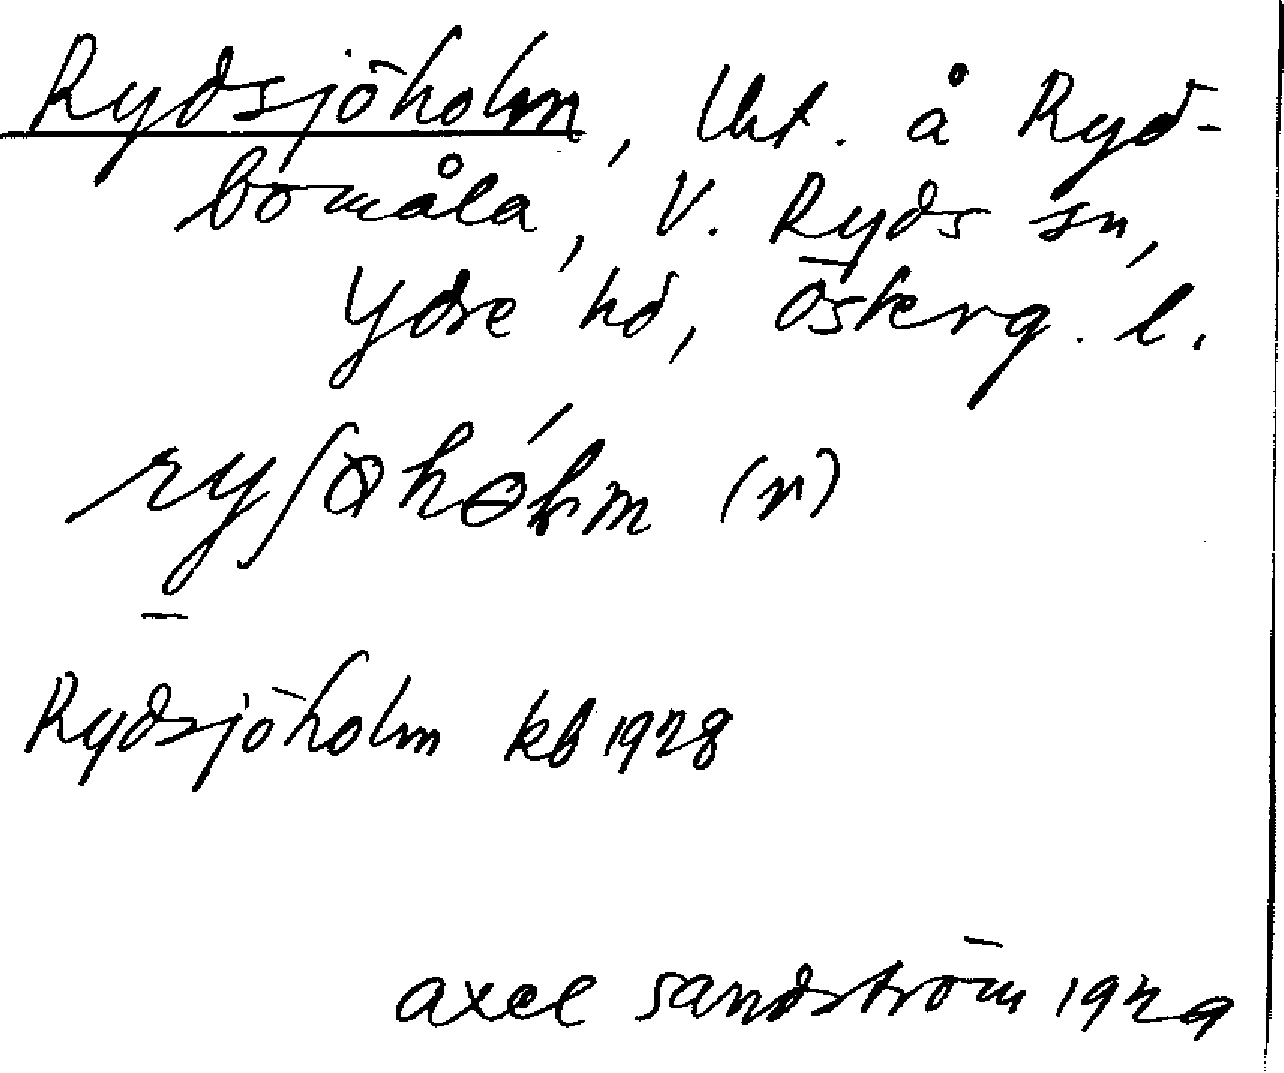 Rydsjöholm, lht. å Ryd-
bomåla, V. Ryds sn,
Ydre hd, Österg. l.
(n)
Rydsjöholm kb 1928
Axel Sandström 1929